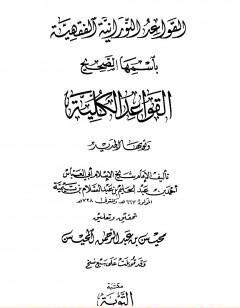 القواعد النورانية الفقهية
باسمها الصحيح
القواعد الكلية
تأليف الإمام شيخ الإسلام أبي العباس
أحمد بن عبد الحليم بن عبد السلام بن تيمية
المولود ٦٦١هـ والمتوفى ٧٢٨هـ
تحقيق وتعليق
محيسن بن عبد الرحمن المحيسن
وقد قوبلت على سبع نسخ
مكتبة
التوبة